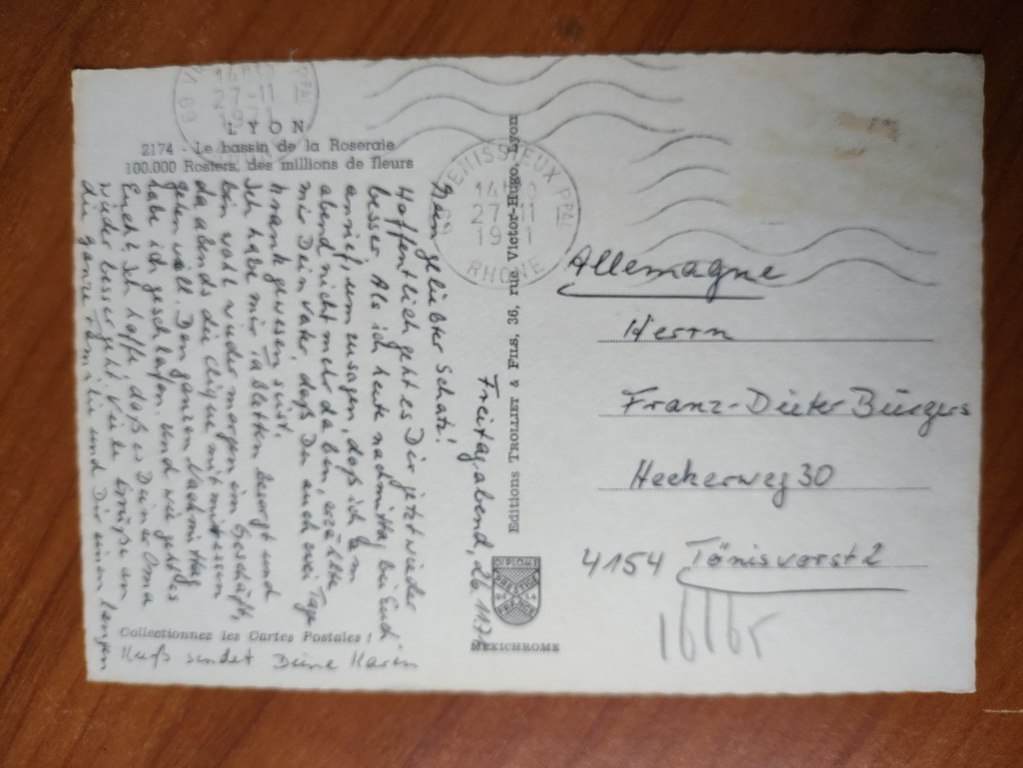 LYON
2174 - Le bassin de la Roseraie
100.000 Rosiers, des millions de fleurs
Freitagabend, 26.11.71
Mein geliebter Schatz!
Hoffentlich geht es Dir jetzt wieder
besser. Als ich heute nachmittag bei Euch
anrief, um zu sagen, daß ich am
abend nicht mehr da bin, erzählte
mir Dein Vater, daß Du auch zwei Tage
krank gewesen seist.
Ich habe mir Tabletten besorgt und
bin wohl wieder morgen im Geschäft,
da abends die Clique mit mir essen
gehen will. Den ganzen Nachmittag
habe ich geschlafen. Und wie geht es
Euch? Ich hoffe, daß es Deiner Oma
wieder besser geht. Viele Grüße an
die ganze Familie und Dir einen langen
Kuß sendet Deine Karin
Collectionnez les Cartes Postales !
Editions TROLLIET & FILS, 36, rue Victor-Hugo - Lyon
MEXICHROME
VENISSIEUX PPAL
27-11
RHONE
69
Allemagne
Herrn
Franz-Dieter Bürgers
Heckerweg 30
4154 Tönisvorst 2
16165